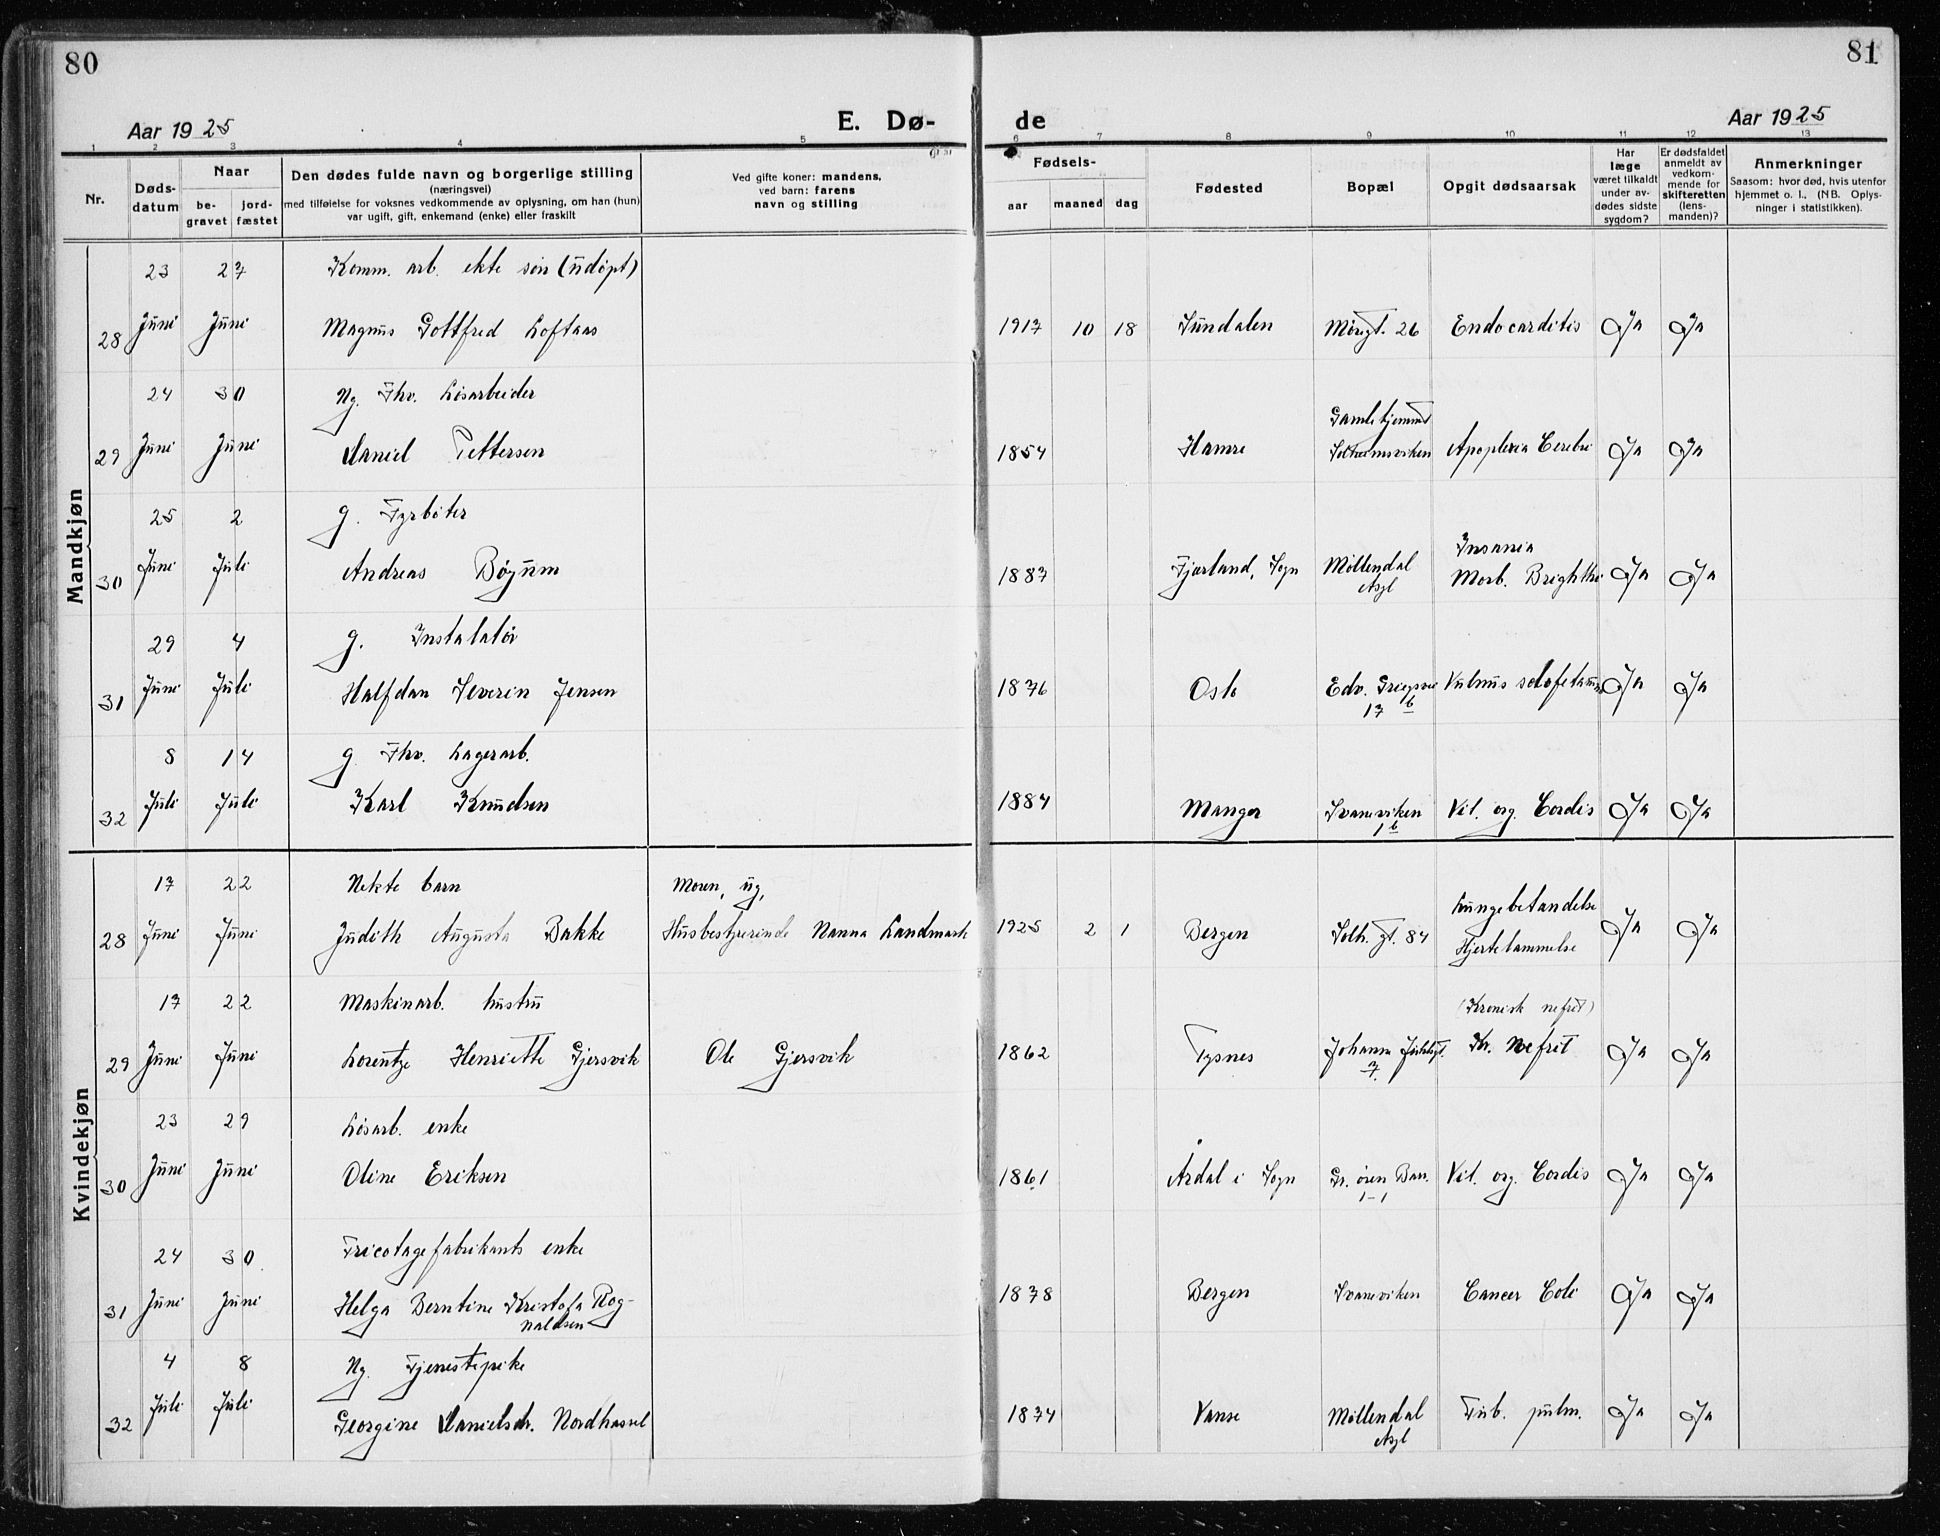 80
81
Aar 1925
E. Dø-
de
Aar 1925
1 2 3 4 5 6 7 8 9 10 11 12 13
Nr.
Døds-
datum
Naar
be-
gravet
jord-
fæstet
Den dødes fulde navn og borgerlige stilling
(næringsvei)
med tilføielse for voksnes vedkommende av oplysning, om han (hun)
var ugift, gift, enkemand (enke) eller fraskilt
Ved gifte koner: mandens,
ved barn: farens
navn og stilling
Fødsels-
aar maaned dag
Fødested
Bopæl
Opgit dødsaarsak
Har
læge
været tilkaldt
under av-
dødes sidste
sygdom?
Er dødsfaldet
anmeldt av
vedkom-
mende for
skifteretten
(lens-
manden)?
Anmerkninger
Saasom: hvor død, hvis utenfor
hjemmet o. l., (NB. Oplys-
ninger i statistikken).
Mandkjøn
23 27 Komm. arb. ekte søn (udøpt)
28 Juni Juni Magnus Gottfred Loftaas 1917 10 18 Sundalen 26 Endocarditis Ja Ja
24 30 Ug. Fhv. Løsarbeider
Gamlehjemmet
29 Juni Juni Daniel Pettersen 1854 Hamre Solheimsviken Apoplexia Cerebri Ja Ja
25 2 g. Fyrbøter
Insania
30 Juni Juli Andreas Bøyum 1887 Fjærland, Sogn Møllendal Morb. Brighthi Ja Ja
Asyl
29 4 g. Instalatør
31 Juni Juli Halfdan Severin Jensen 1876 Oslo Edv. Griegsvei Vulnus Ja Ja
17 b
8 14 g. Fhv. Lagerarb.
32 Juli Juli Karl Knudsen 1884 Manger Svaneviken Vit. org. Cordis Ja Ja
1 b
Kvindekjøn
17 22 Uekte barn Moren, ug,
Lungebetændelse
28 Juni Juni Judith Augusta Bakke Husbestyrerinde Nanna Landmark 1925 2 1 Bergen Solh. gt. 84 Hjertelammelse Ja Ja
17 22 Maskinarb. hustru (Kronisk nefrit)
29 Juni Juni Lorentze Henriette Gjersvik Ole Gjersvik 1862 Tysnes Johanne Kr. Nefrit Ja Ja
7.
23 29 Løsarb. enke
30 Juni Juni Oline Eriksen 1861 Årdal i Sogn Gr. øren Bar. Vit. org. Cordis Ja Ja
1-1
24 30 Tricotagefabrikants enke
31 Juni Juni Helga Berntine Kristofa Rog- 1838 Bergen Svaneviken Cancer Coli Ja Ja
naldsen
4 8 Ug. Tjenestepike
32 Juli Juli Georgine Danielsdr. Nordhassel 1874 Vanse Møllendal Tub. pulm. Ja Ja
Asyl